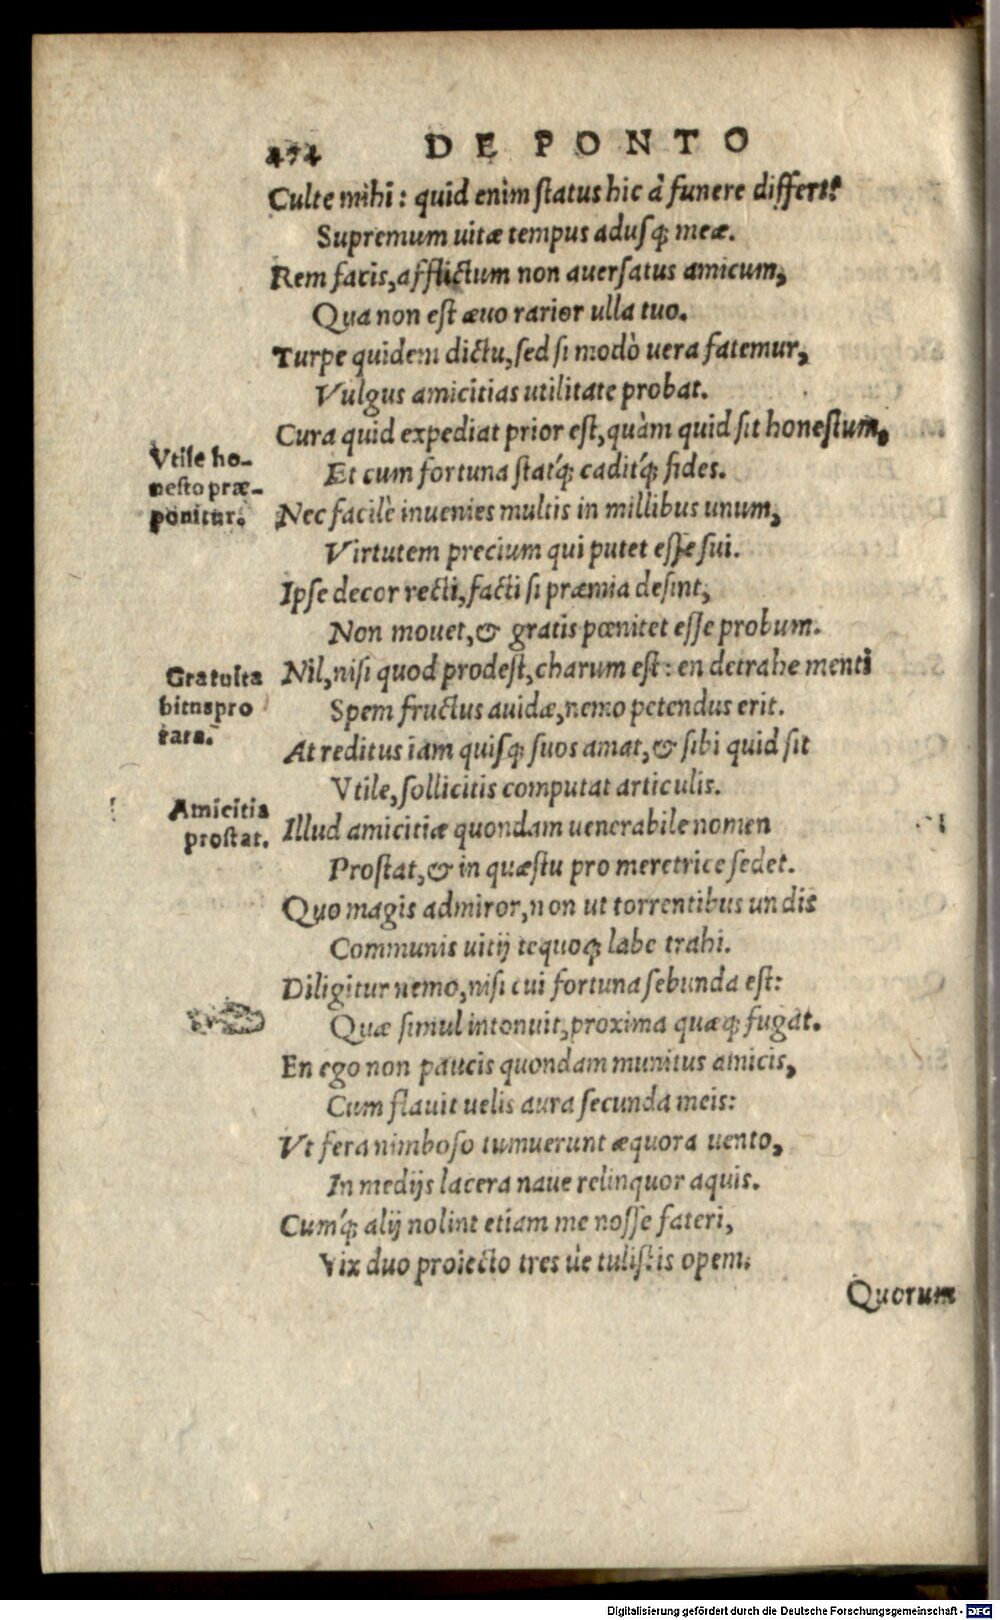 474 DE PONTO
Culte mihi: quid enim status hic à funere differt?
Supremum uitæ tempus adusq; meæ.
Rem facis, afflictum non auersatus amicum,
Qua non est æuo rarior ulla tuo.
Turpe quidem dictu, sed si modò uera fatemur,
Vulgus amicitias utilitate probat.
Cura quid expediat prior est, quàm quid sit honestum,
Vtile ho-
nesto præ-
ponitur.
Et cum fortuna statq́; caditq́; fides.
Nec facilè inuenies multis in millibus unum,
Virtutem precium qui putet esse sui.
Ipse decor recti, facti si præmia desint,
Non mouet, & gratis pœnitet esse probum.
Gratuita
bitas pro
rara.
Nil, nisi quod prodest, charum est: en detrahe menti
Spem fructus auidæ, nemo petendus erit.
At reditus iam quisq; suos amat, & sibi quid sit
Vtile, sollicitis computat articulis.
Amicitia
prostat.
Illud amicitiæ quondam uenerabile nomen
Prostat, & in quæstu pro meretrice sedet.
Quo magis admiror, non ut torrentibus undis
Communis uitij te quoq; labe trahi.
Diligitur nemo, nisi cui fortuna sebunda est:
Quæ simul intonuit, proxima quæq; fugat.
En ego non paucis quondam munitus amicis,
Cum flauit uelis aura secunda meis:
Vt fera nimboso tumuerunt æquora uento,
In medijs lacera naue relinquor aquis.
Cumq́; alij nolint etiam me nosse fateri,
Vix duo proiecto tres ùe tulistis opem.
Quorum
Digitalisierung gefördert durch die Deutsche Forschungsgemeinschaft - DFG